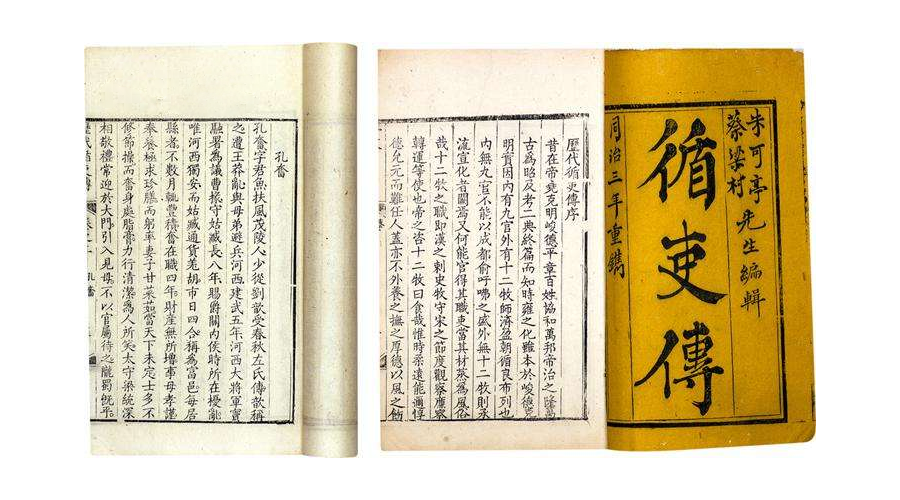 朱可亭
蔡梁村
先生編輯
循吏傳
同治三年重鐫
歷代循吏傳序
昔在帝堯克明峻德平章百姓協和萬邦帝治之隆萬
古為昭及考二典終篇而知時雍之化雖本於峻德
明實因內有九官外有十二牧師濟盈朝循良布列也
內無九官不能以成都俞吁咈之盛外無十二牧則承
流宣化者闕焉又何能官得其職吏當其材蒸為風俗
哉十二牧之職即漢之刺史牧守宋之節度觀察廉察
轉運等使也帝之咨十二牧曰食哉惟時柔遠能邇惇
德允元而難任人蓋亦不外養之撫之厚德以風之飭
孔奮
孔奮字君魚扶風茂陵人少從劉歆受春秋左氏傳歆稱
之遭王莽亂與母弟避兵河西建武五年河西大將軍竇
融署為議曹掾守姑臧長八年賜爵關內侯時所在擾亂
唯河西獨安而姑臧通貨羌胡市日四合稱為富邑每居
縣者不數月輒豐積奮在職四年財產無所增事母孝謹
奉養極求珍膳而躬率妻子甘菜茹當天下未定士多不
修節操而奮身處脂膏力行清潔為人所笑太守梁統深
相敬禮常迎於大門引入見母不以官屬待之隴蜀既平